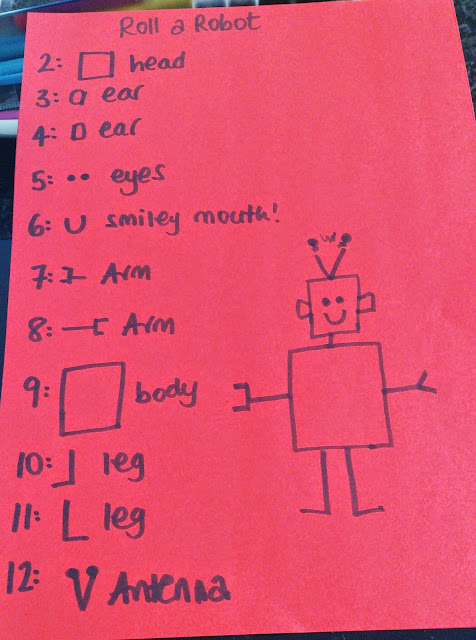 Roll a Robot
2: head
3: ear
4: ear
5: eyes
6: smiley mouth!
7: Arm
8: Arm
9: body
10: leg
11: leg
12: Antenna